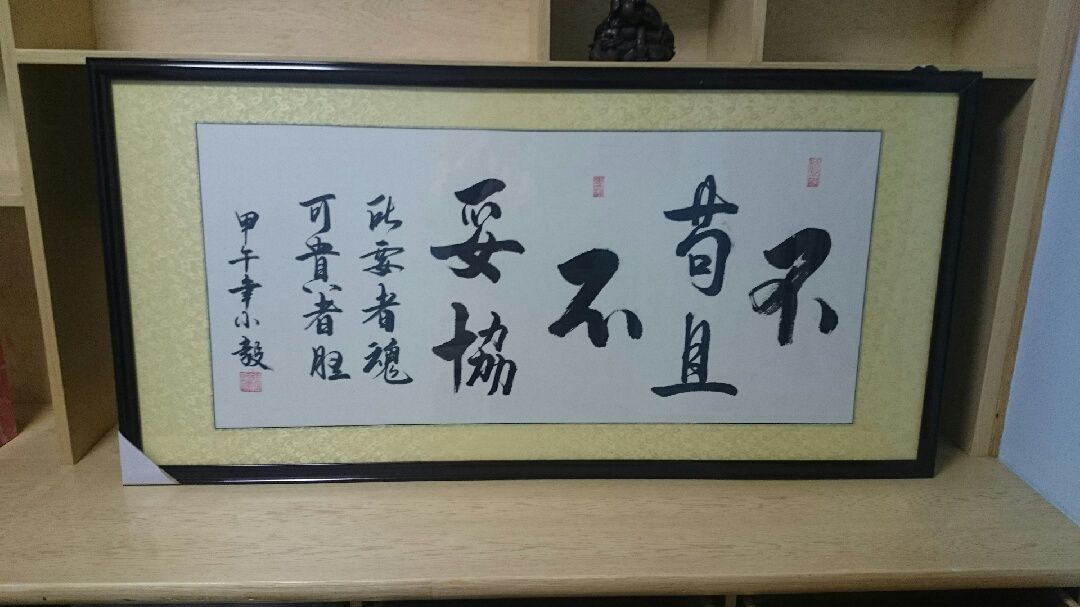 不
苟且
不
妥協
所要者魂
可貴者胆
甲午小毅